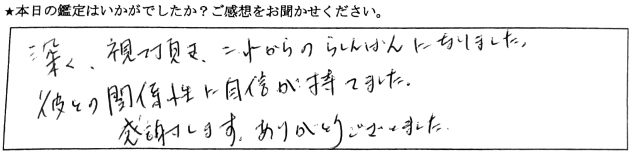 ★本日の鑑定はいかがでしたか？ご感想をお聞かせください。
深く、視て頂き、これからのらしんばんになりました。
彼との関係性に自信が持てました。
感謝します。ありがとうございました。